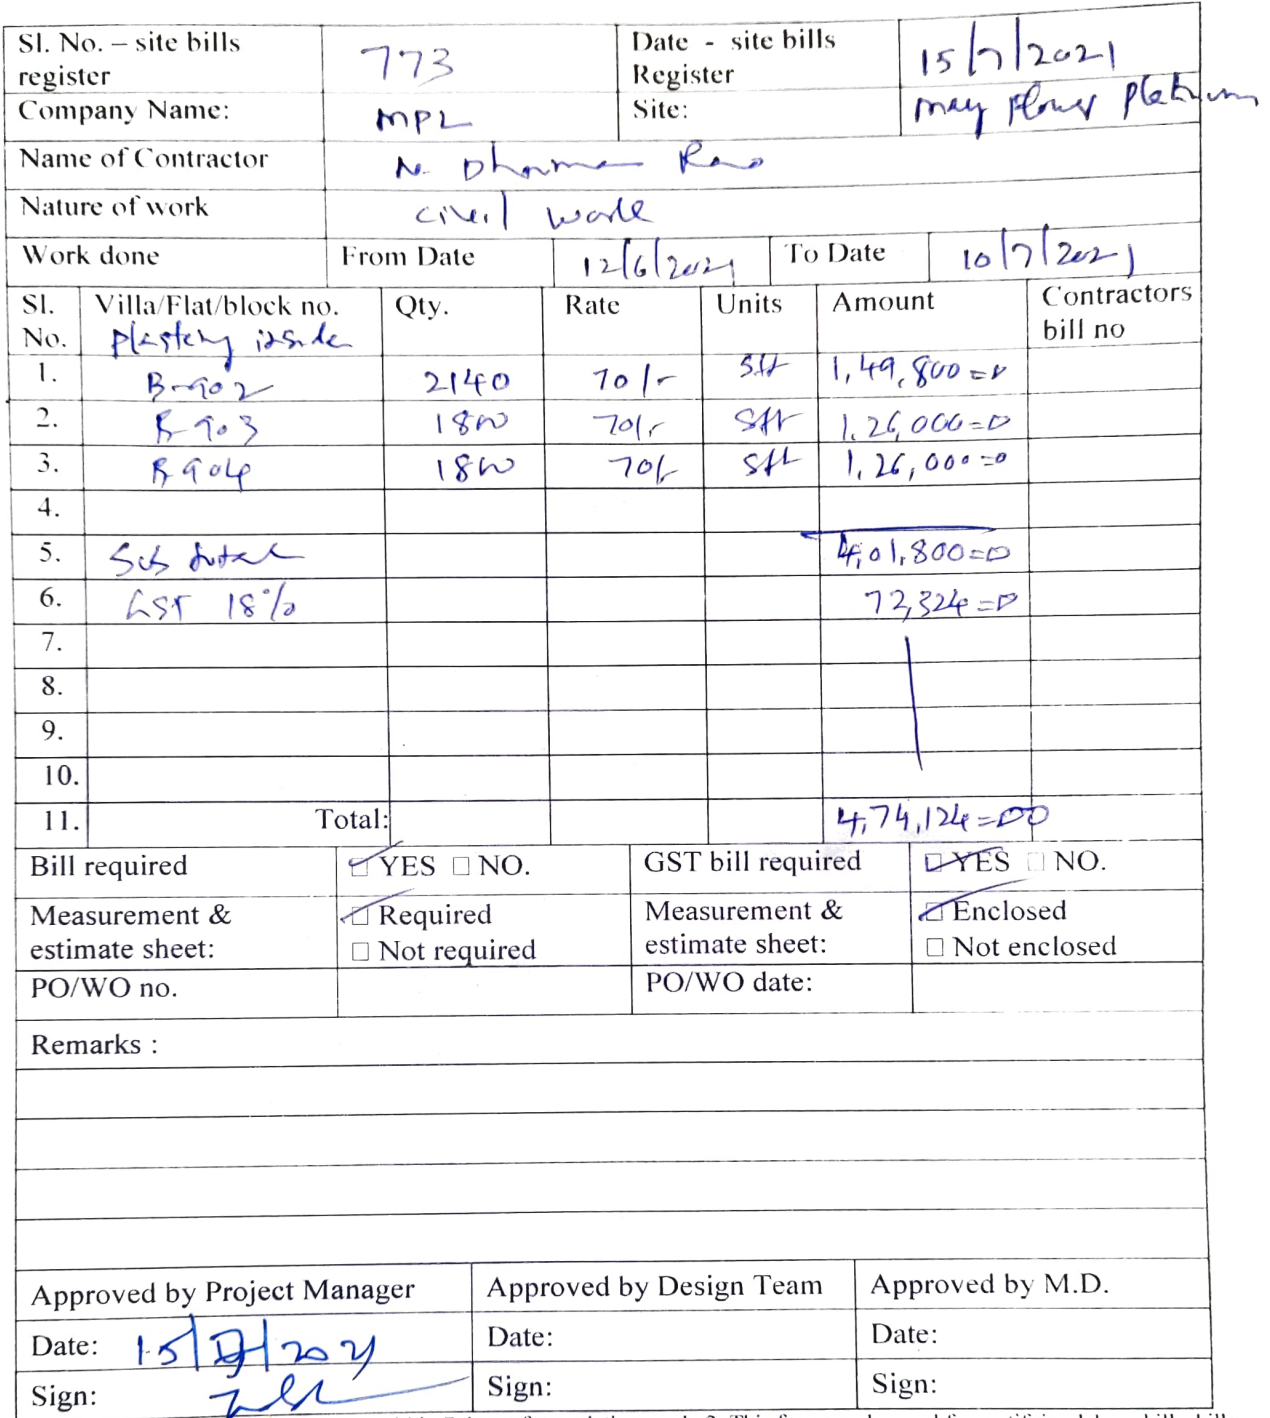 Sl. No. – site bills register 773 Date - site bills Register 15/7/2021
Company Name: MPL Site: May Flower Platinum
Name of Contractor N. Dharma Rao
Nature of work civil work
Work done From Date 12/6/2021 To Date 10/7/2021
Sl. No. Villa/Flat/block no. Qty. Rate Units Amount Contractors bill no
Plastering inside
1. B-902 2140 70/- Sft 1,49,800=0
2. B-903 1800 70/- Sft 1,26,000=0
3. B-904 1800 70/- Sft 1,26,000=0
4.
5. Sub total 4,01,800=0
6. GST 18% 72,324=0
7.
8.
9.
10.
11. Total: 4,74,124=00
Bill required YES NO. GST bill required YES NO.
Measurement & estimate sheet: Required Not required Measurement & estimate sheet: Enclosed Not enclosed
PO/WO no. PO/WO date:
Remarks :
Approved by Project Manager Approved by Design Team Approved by M.D.
Date: 15/7/2021 Date: Date:
Sign: Sign: Sign: